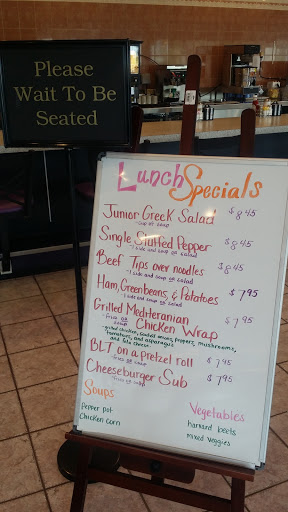 Please
Wait To Be
Seated
Lunch Specials
Junior Greek Salad $8.45
-cup of soup
Single Stuffed Pepper $8.45
-1 side and soup or salad
Beef Tips over noodles $8.45
-1 side and soup or salad
Ham, Greenbeans, & Potatoes $7.95
-1 side and soup or salad
Grilled Mediteranian $7.95
-fries or soup Chicken Wrap
-grilled chicken, sautéed onions, peppers, mushrooms,
tomatoes, and asparagus
and feta cheese
BLT on a pretzel roll $7.95
-fries or soup
Cheeseburger Sub $7.95
-fries or soup
Soups
Pepper pot
Chicken corn
Vegetables
harvard beets
mixed veggies